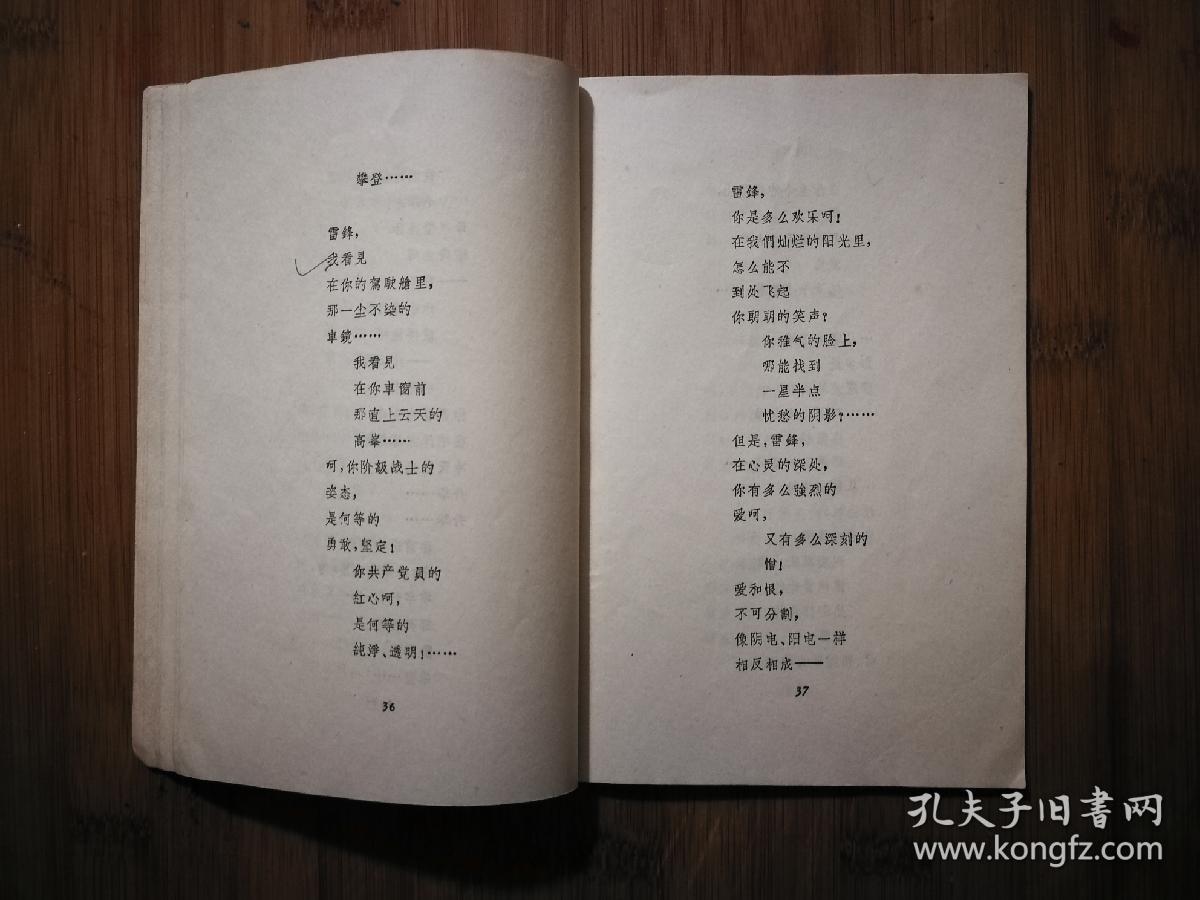 攀登……
雷鋒，
我看見
在你的駕駛艙里，
那一尘不染的
車鏡……
我看見
在你車窗前
那直上云天的
高峯……
呵，你阶級战士的
姿态，
是何等的
勇敢，坚定！
你共产党員的
紅心呵，
是何等的
純淨、透明！……
36
雷鋒，
你是多么欢乐呵！
在我們灿烂的阳光里，
怎么能不
到处飞起
你朗朗的笑声？
你稚气的脸上，
哪能找到
一星半点
忧愁的阴影？……
但是，雷鋒，
在心灵的深处，
你有多么強烈的
爱呵，
又有多么深刻的
憎！
爱和恨，
不可分割，
像阴电、阳电一样
相反相成——
37
孔夫子旧書网
www.kongfz.com